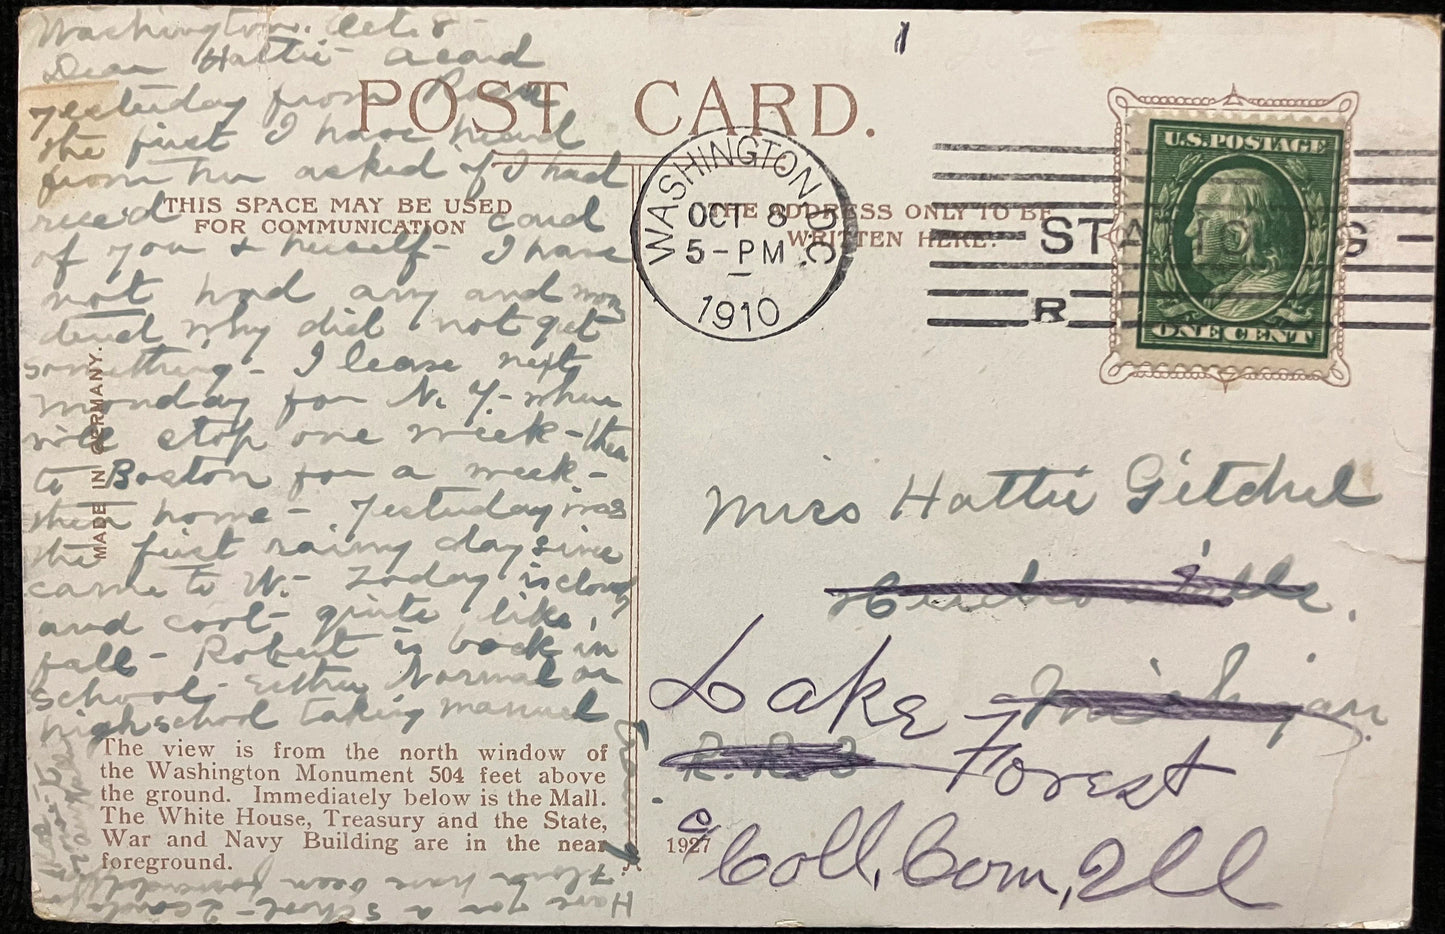 Washington. Oct. 8-
Dear Hattie - A card
yesterday from Rosa
the first I have heard
from her asked if I had
rece'd card
of you & herself - I have
not had any and
why did not get
something - I leave next
Monday for N. Y. - where
will stop one week - then
to Boston for a week -
then home - Yesterday was
the first rainy day since
came to W. - Today is cloudy
and cool - quite like
fall - Robert is back in
school - Either Normal or
high school taking manual
Training
Have you a school - 2 cards from
Flora have been forwarded
POST CARD.
THIS SPACE MAY BE USED
FOR COMMUNICATION
THE ADDRESS ONLY TO BE
WRITTEN HERE.
MADE IN GERMANY.
The view is from the north window of
the Washington Monument 504 feet above
the ground. Immediately below is the Mall.
The White House, Treasury and the State,
War and Navy Building are in the near
foreground.
1927
WASHINGTON D.C.
OCT 8
5-PM
1910
STA G
R
U.S. POSTAGE
ONE CENT
1
Miss Hattie Gitchel
Michigan
Lake
Forest
c/o Coll, Com, Ill